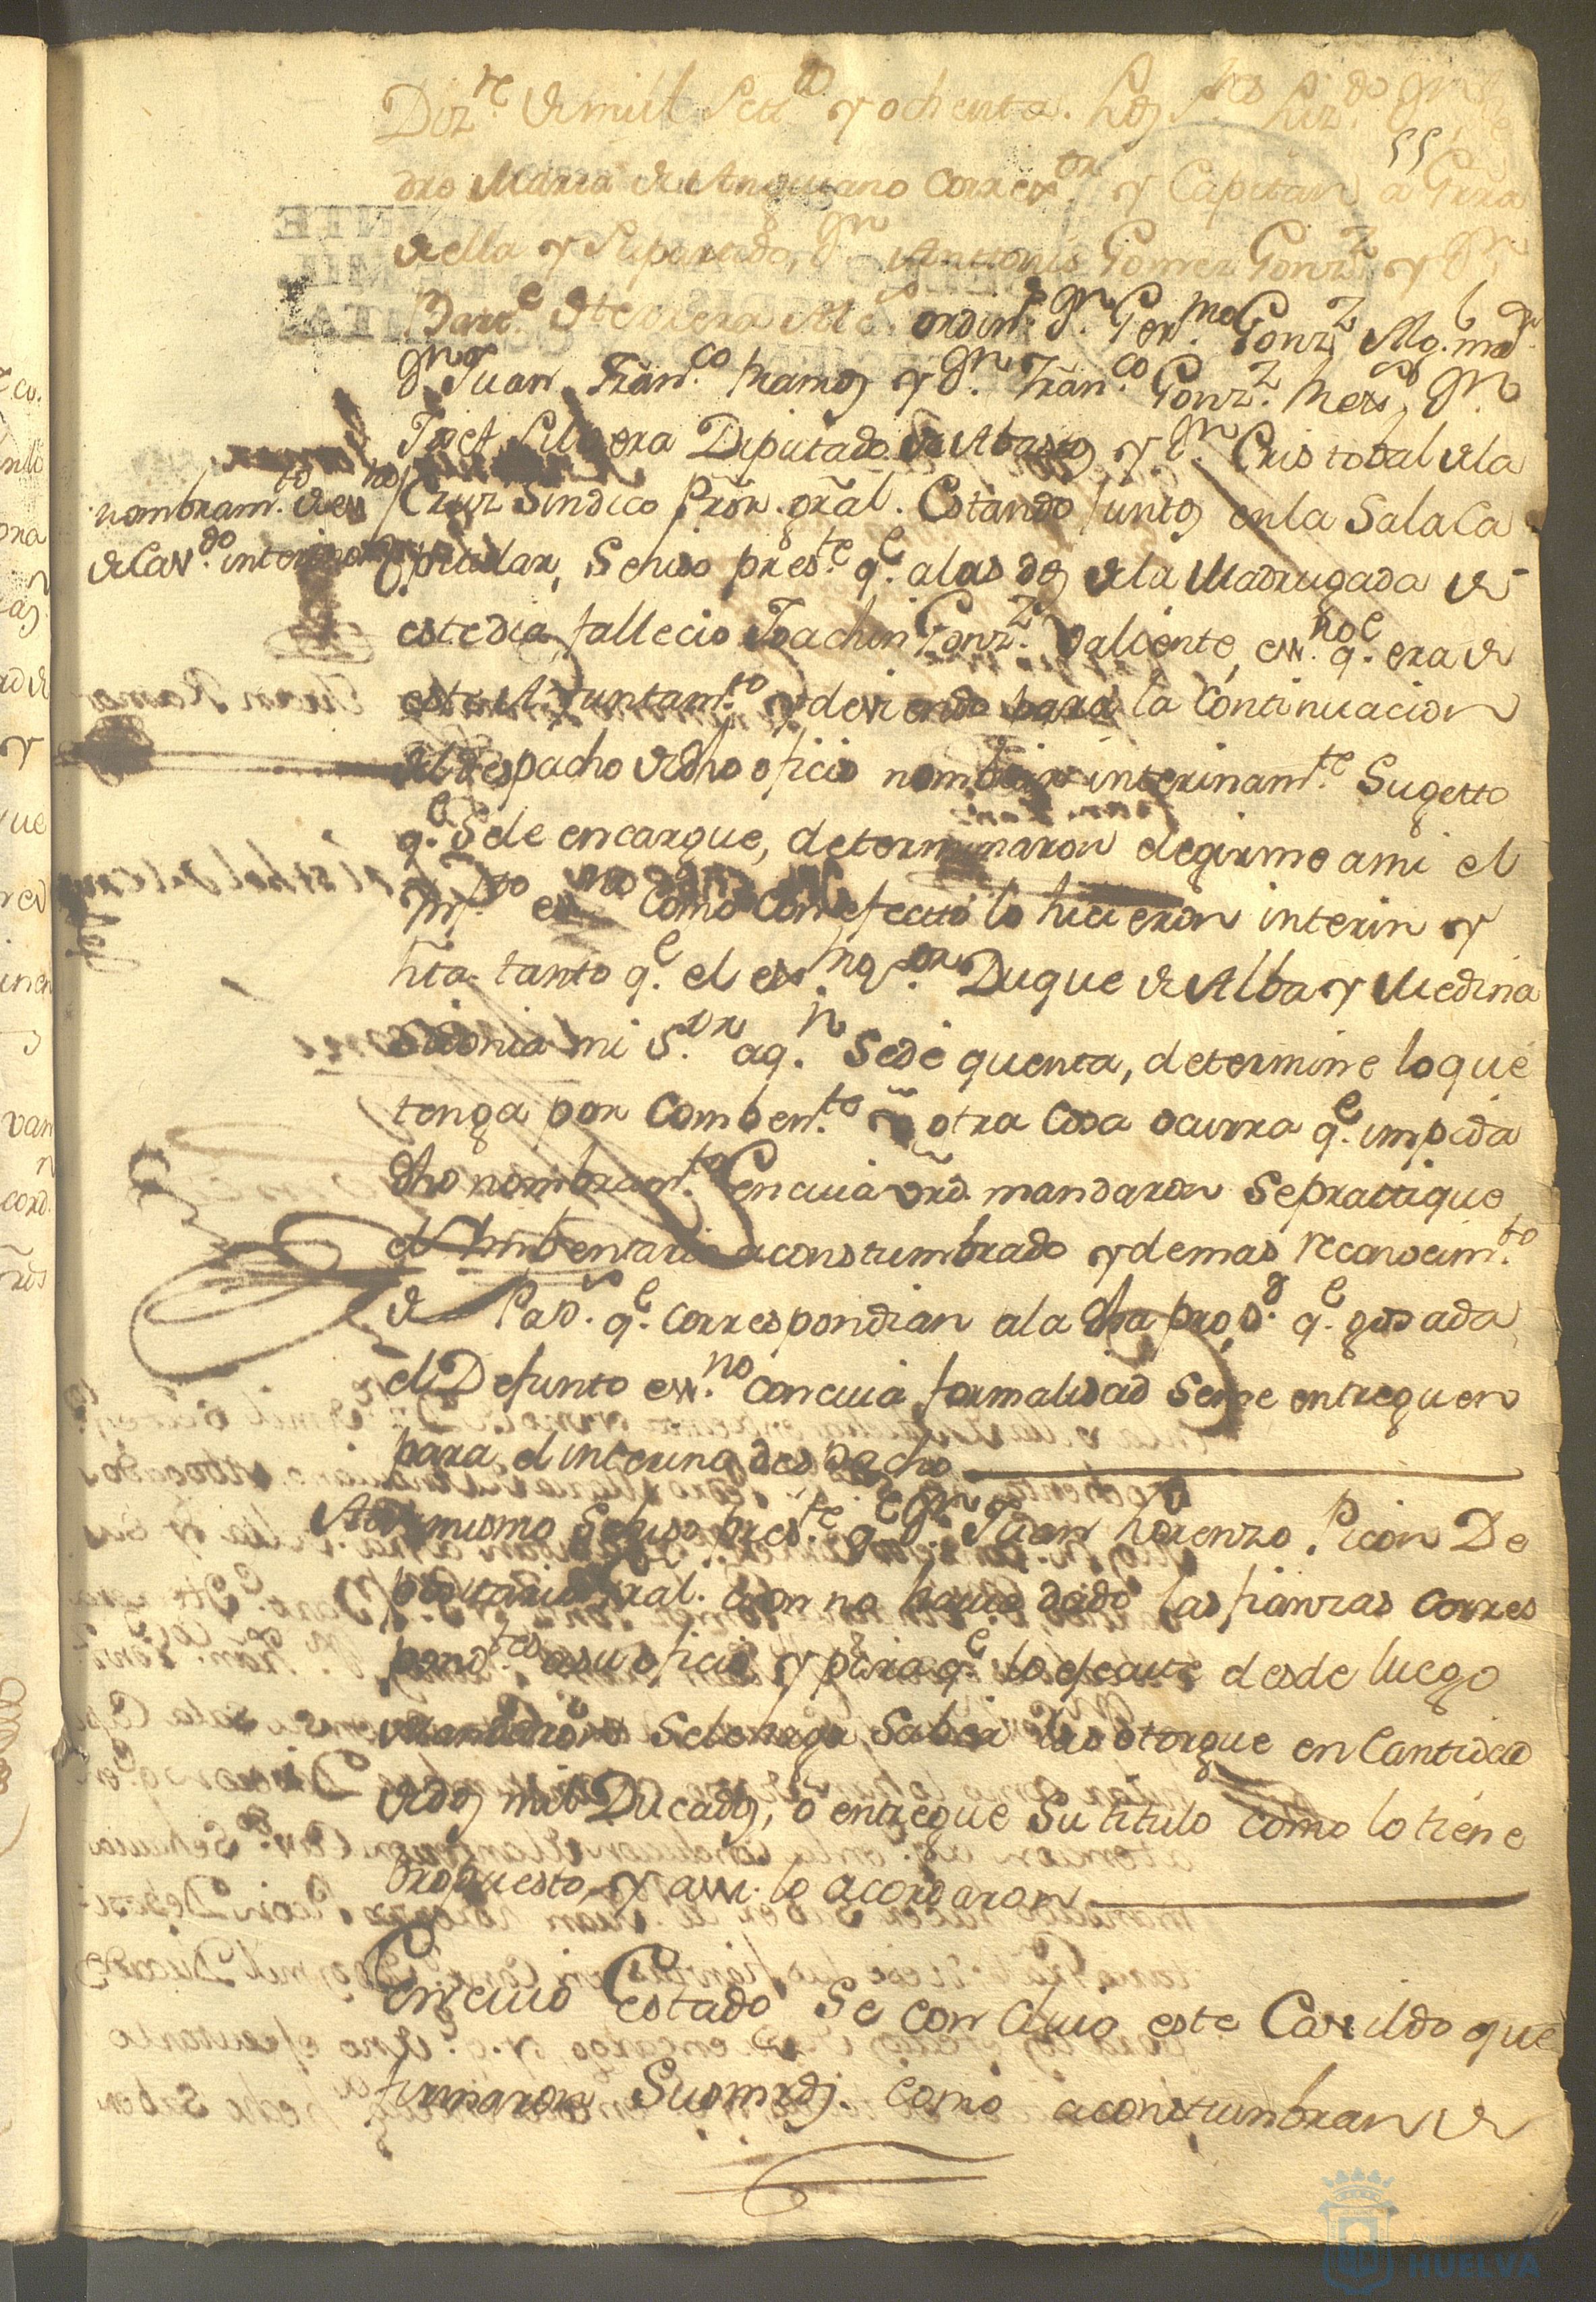 Diz.re de mill Set.s y ochenta. Los S.res Liz.do D.n
dro Maria de Anguiano Correx.or y Capitan a Grra
55
de ella y Su partido, D.n Anttonio Gomez Gonz.z y D.n
Bart.e de tebera Alc.s ordin.s D.n Ger.mo Gonz.z Alg.l m.or
D.n Juan Fran.co Ramos y D.n Fran.co Gonz.z Rex.s D.n
Josef Silbera Diputado de Abastos y D.n Cristobal de la
Cruz Sindico Prõr. grãl. Estando Juntos en la Sala Ca
pitular, Se hiso pres.te q.e a las dos de la Madrugada de
este dia fallecio Joachin Gonz.z Valiente, ess.no q.e era de
este Ayuntam.to y deviendo para la continuacion
del despacho de dho oficio nombrar interinam.te Sugetto
q.e Se le encargue, determinaron elegirme a mi el
Inf.to ess.no como con efectto lo hicieron interin y
hta. tanto q.e el ex.mo S.or Duque de Alba y Medina
Sidonia mi S.or a q.n Se dé quenta, determine lo que
tenga por combem.te ũ otra cosa ocurra q.e impida
dho nombram.to En cuia vrd. mandaron Se prattique
el Imbentario acostumbrado y demas reconocim.to
de Pap.s q.e correspondian a la dha pro.. q.e gosada
el Defunto ess.no con cuia formalidad Se me entreguen
para el interino despacho
nombram.to de ess.no
de Cav.do interino
Asimismo Se hiso pres.te q.e D.n Juan Lorenzo Picon De
positario Gral. aun no havia dado las fianzas corres
pond.tes a su oficio y para q.e lo efectue desde luego
Mandaron Se le haga Saber las otorgue en Cantidad
de dos mil Ducados, o entregue Su titulo como lo tiene
propuesto, y assi lo acordaron
En cuio Estado Se concluio este Cavildo que
firmaron Sus mrds. como acostumbran de
HUELVA